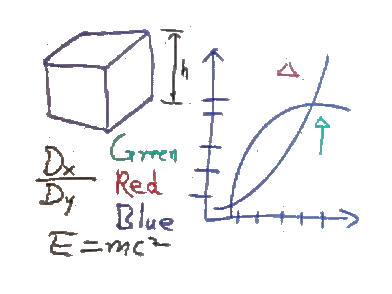 h
Dx
Dy
Green
Red
Blue
E=mc²